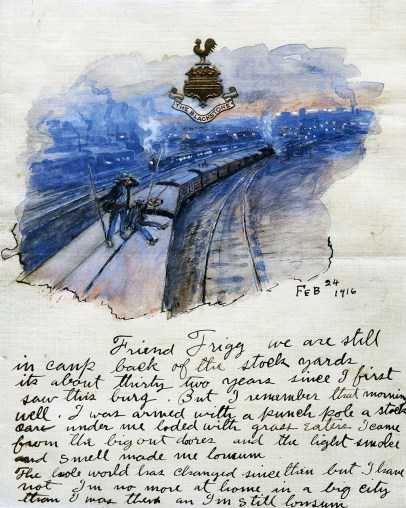 THE BLACKSTONE
FEB 24
1916
Friend Trigg we are still
in camp back of the stock yards
its about thirty two years since I first
saw this burg. But I remember that morning
well. I was armed with a punch pole a stock
care under me loded with grass eaters I came
from the big out dores and the light smoke
and smell made me lonsum
The hole world has changed since than but I have
not Im no more at home in a big city
than I was then an Im still lonsum